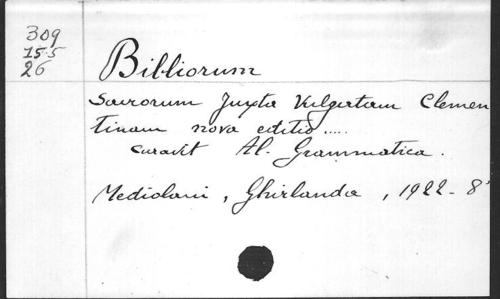 309
155
26
Bibliorum
Sacrorum Juxta Vulgatam Clemen
tinam nova editio.....
curavit Al. Grammatica.
Mediolani, Ghirlanda, 1922 - 8°